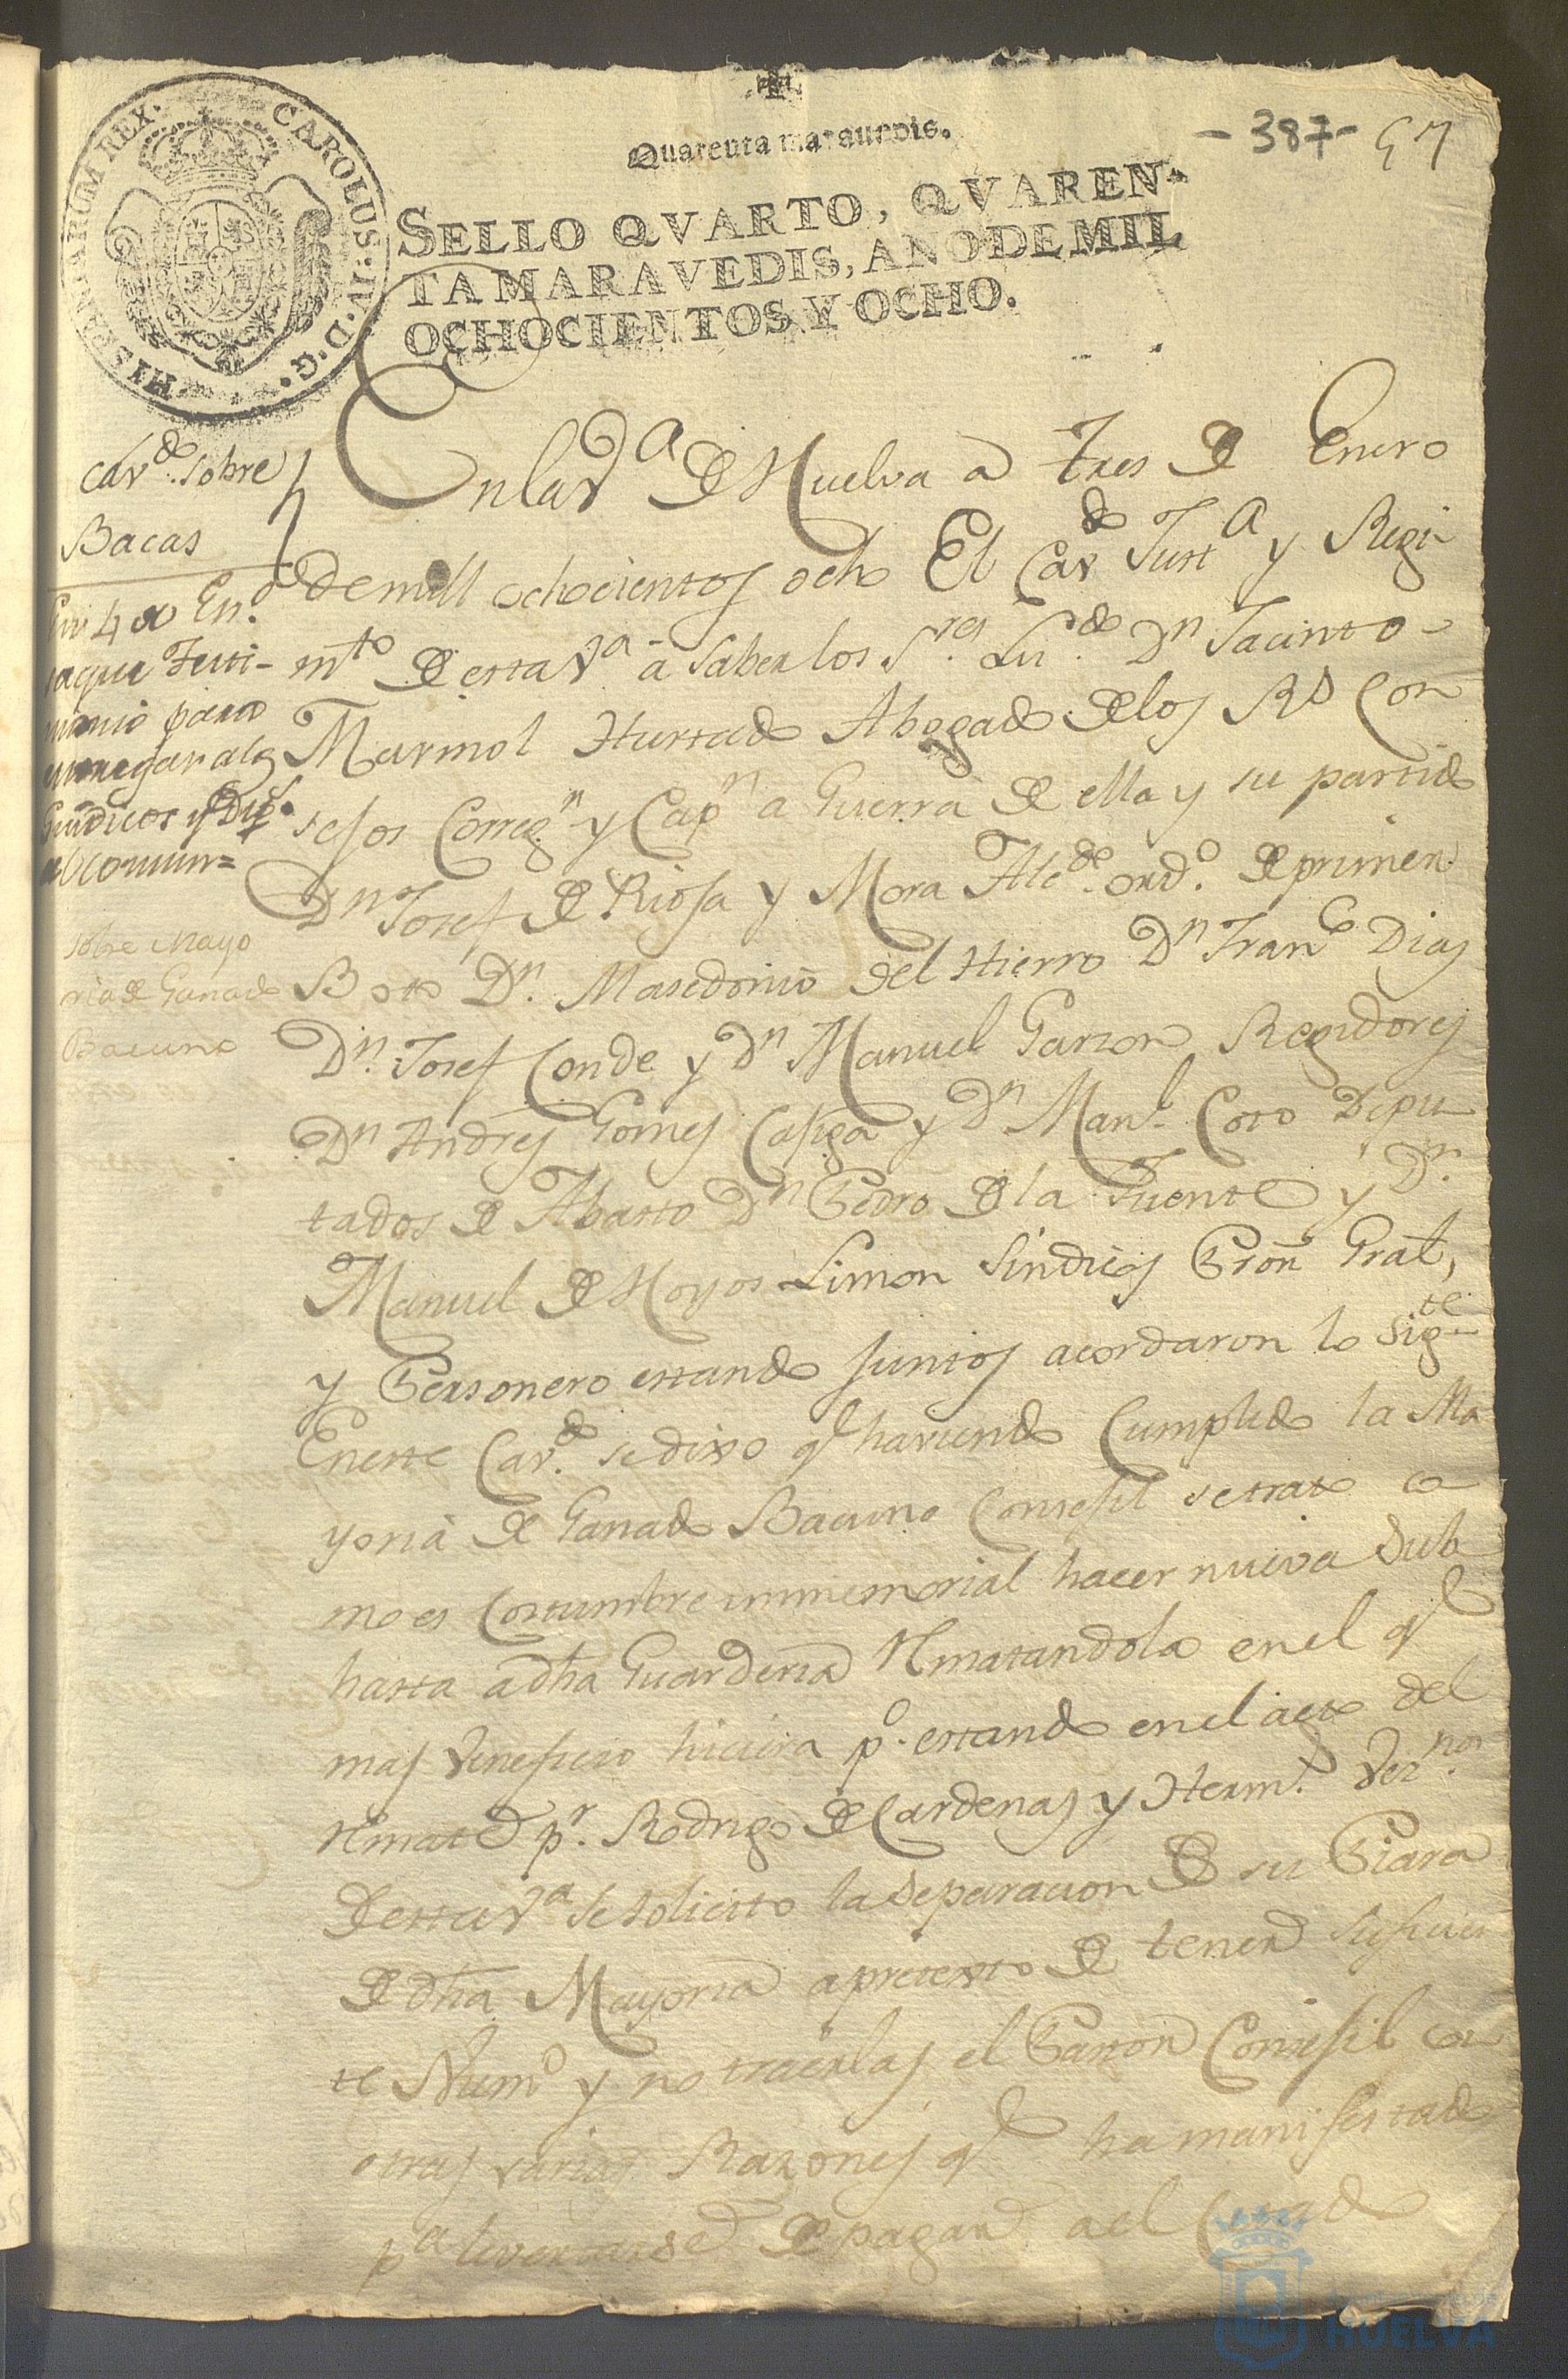 Quarenta marauedis.
- 387 - 57
SELLO QVARTO, QVAREN-
TA MARAVEDIS, ANO DE MIL
OCHOCIENTOS Y OCHO.
CAROLUS·IV·D·G· HISPANIARUM REX·
Cavdo. sobre
Bacas
En 4 de Eno.
saque Testi-
monio para
entregar a los
Sindicos y Dips.
del Comun=
sobre Mayo
ria de Ganado
Bacuno
En la Va de Huelva a tres de Enero
de mill ochocientos ocho El Cavdo Justa y Regi-
mto de esta Va a saber los Sres. Lizdo. Dn Jacinto
Marmol Hurtado Abogado de los Rs Con
sejos Corregn. y Capn a Guerra de ella y su partido
Dn Josef de Riosa y Mora Alcde. ordo. de primer
Boto Dn. Masedonio del Hierro Dn Franco Dias
Dn. Josef Conde y Dn Manuel Garzon Regidores
Dn Andres Gomes Casiga y Dn Manl. Coto Dipu
tados de Abasto Dn Pedro de la Fuente y Dn.
Manuel de Hoyos Limon Sindicos Prōn Gral,
y Personero estando juntos acordaron lo Sigte
En este Cavdo. se dixo q haviendo Cumplido la Ma
yoria de Ganado Bacuno Consejil se trato co
mo es Costumbre immemorial hacer nueva Sub
hasta a dha Guarderia Rematandola en el q
mas veneficio hiciera po. estando en el acto del
Remate pr. Rodrigo de Cardenas y Herms. Veznos
de esta Va se solicito la separacion de su Piara
de dha Mayoria a pretexto de tener suficien
te Numo y no traerlas el Garron Consejil con
otras varias Razones q ha manifestado
pa livertarse de pagar a el
HUELVA